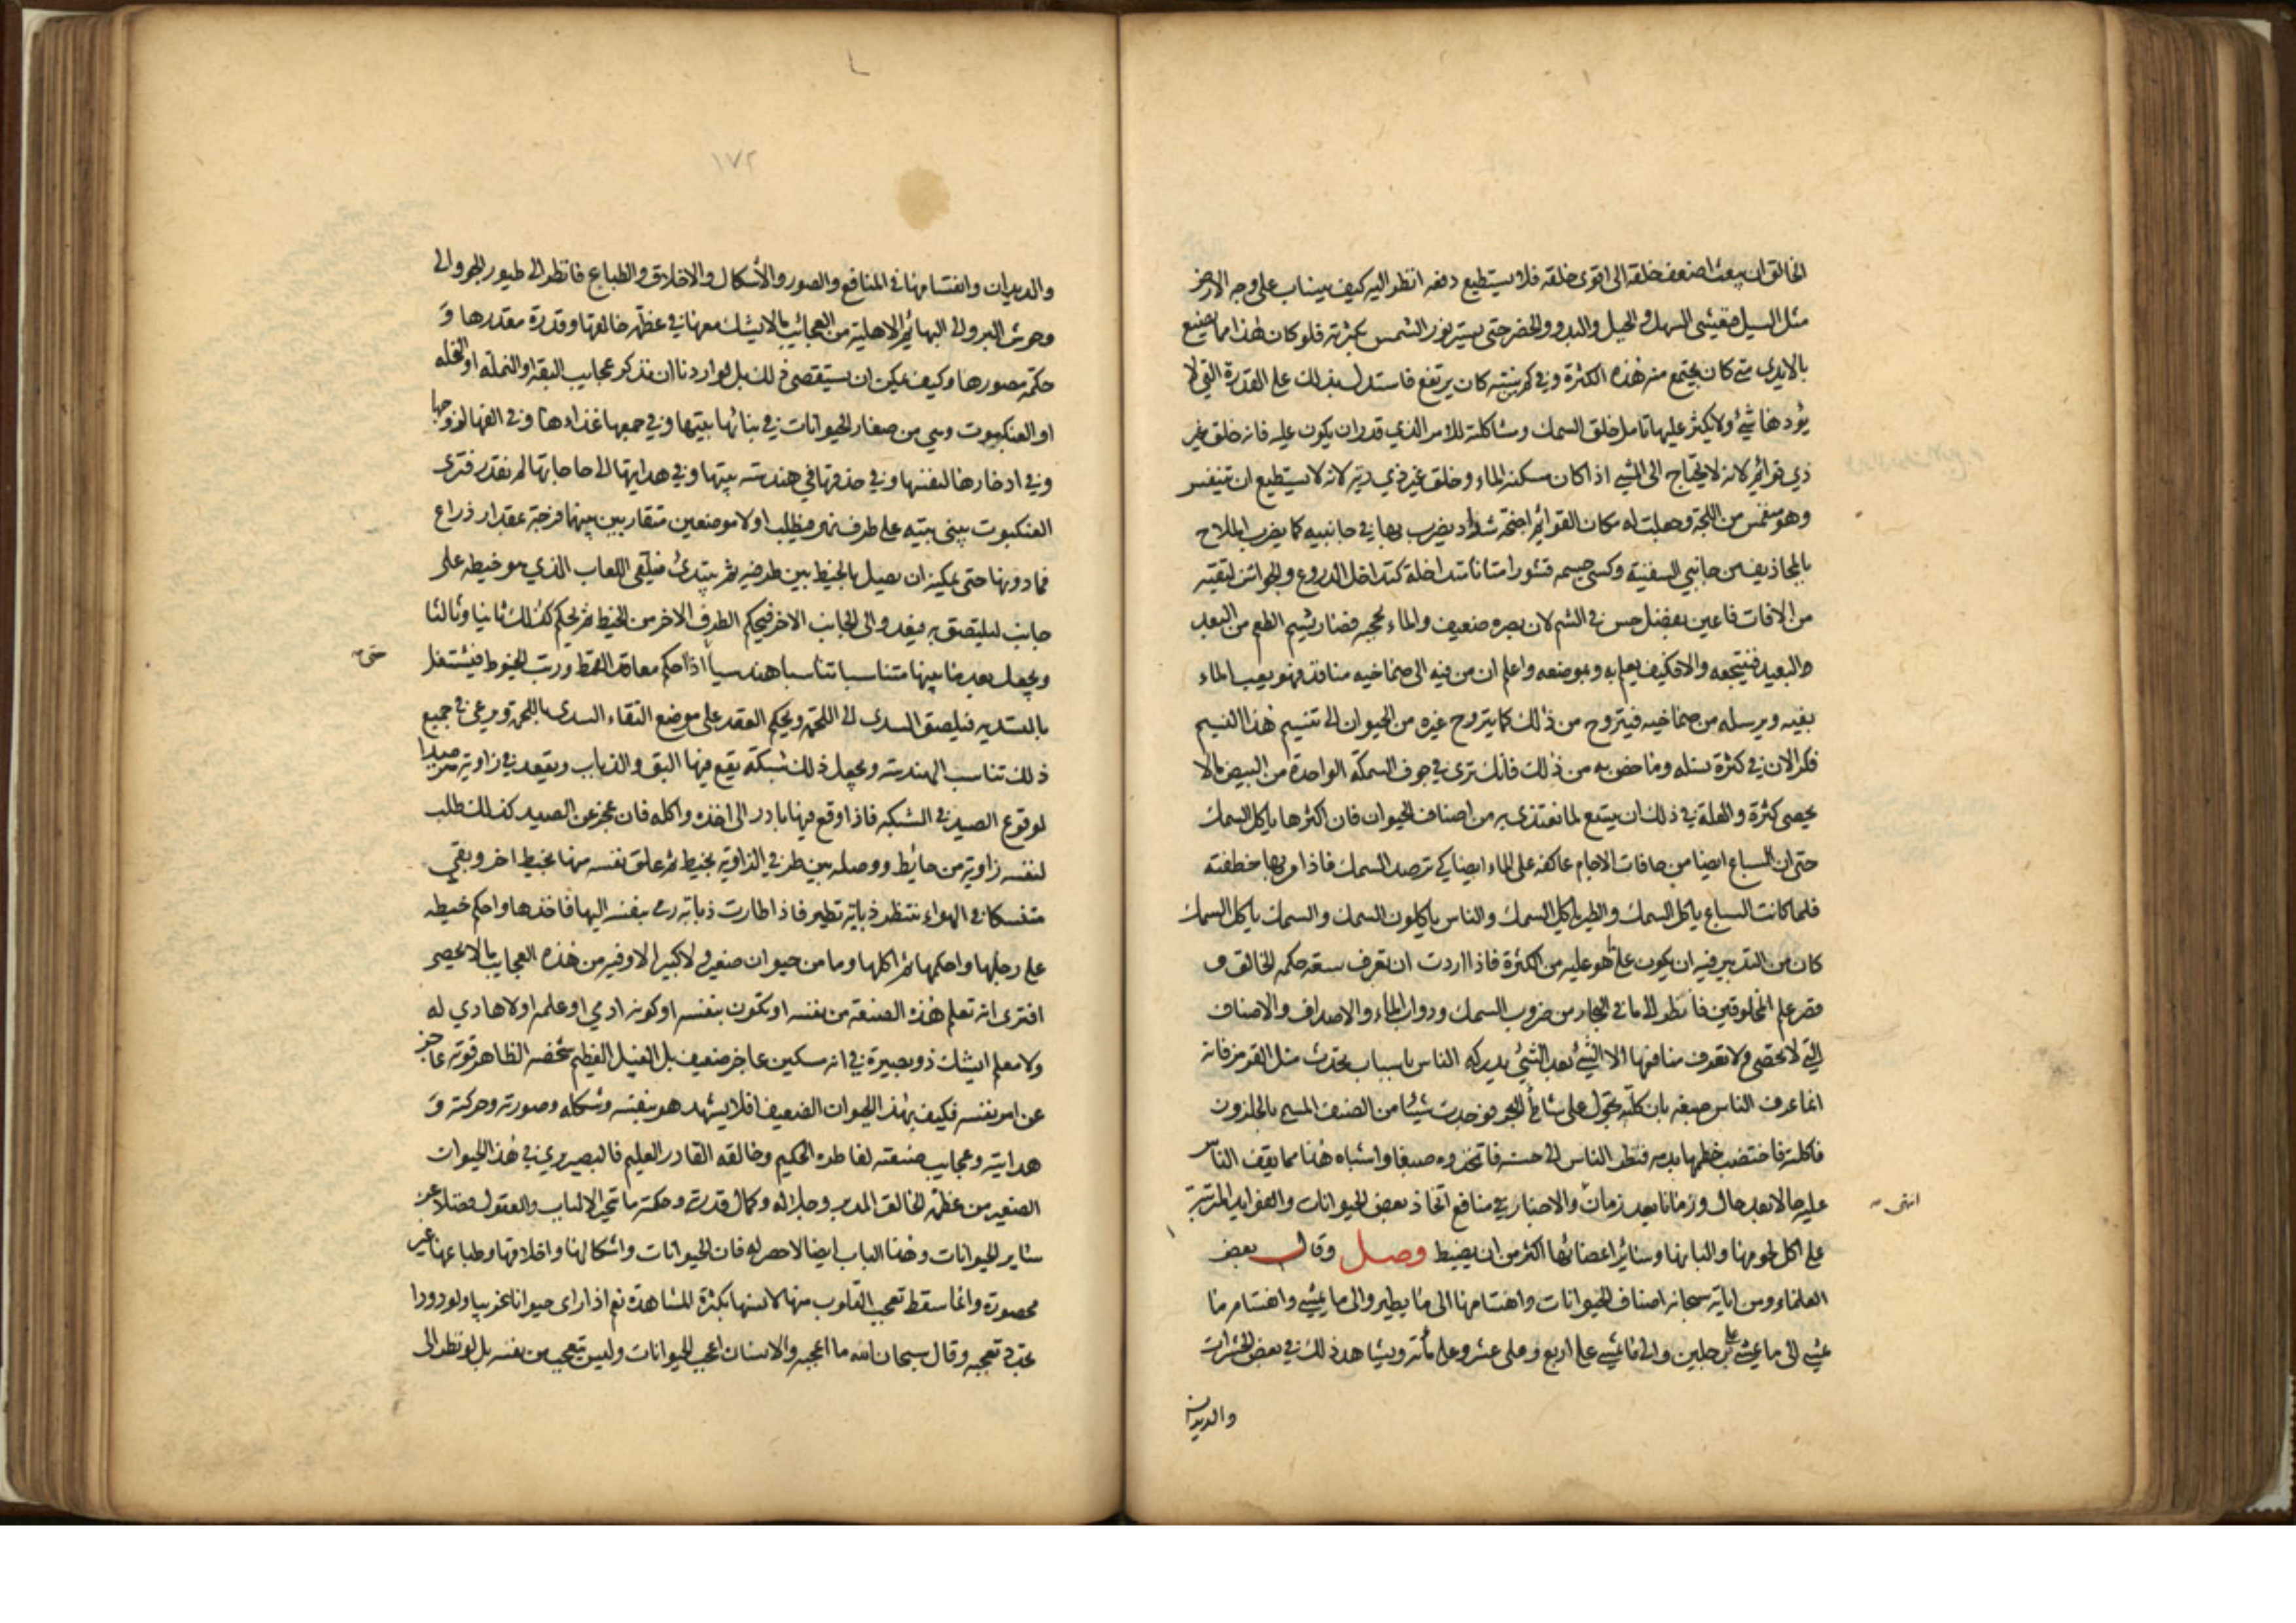 الخالق ان يبعث اضعف خلقه الى اقوى خلقه فلا يستطيع دفعه انظر اليه كيف ينساب على وجه الارض
مثل السيل فيغشى السهل والجبل والبدو والحضر حتى يستر نور الشمس بكثرته فلو كان هذا مما يصنع
بالايدي متى كان يجتمع منه هذه الكثرة وفي كم سنة كان يرتفع فاستدل بذلك على القدرة التي لا
يؤدها شئ ولا يكثر عليها تامل خلق السمك ومشاكلته للامر الذي قدر ان يكون عليه فانه خلق غير
ذي قوائم لانه لا يحتاج الى المشي اذا كان مسكنه الماء وخلق غير ذي رية لانه لا يستطيع ان يتنفس
وهو منغمس من اللجة وجعلت له مكان القوائم اجنحة شداد يضرب بها في جانبيه كما يضرب الملاح
بالمجاذيف من جانبي السفينة وكسى جسمه قشورا متانا متداخلة كتداخل الدروع والجواشن لتقيه
من الافات فاعين بفضل حس في الشم لان بصره ضعيف والماء يحجبه فصار يشم الطعم من البعد
والبعيد فينتجعه والا فكيف يعلم به وبموضعه واعلم ان من فيه الى صماخيه منافذ فهو يعب الماء
بفيه ويرسله من صماخيه فيتروح من ذلك كما يتروح غيره من الحيوان الى تنسيم هذا النسيم
فكر الان في كثرة نسله وما خص به من ذلك فانك ترى في جوف السمكة الواحدة من البيض مالا
يحصى كثرة والعلة في ذلك ان يتسع لما تغتذي به من اصناف الحيوان فان اكثرها ياكل السمك
حتى ان السباع ايضا من حافات الاجام عاكفة على الماء ايضا كي ترصد السمك فاذا مر بها خطفته
فلما كانت السباع ياكل السمك والطير ياكل السمك والناس ياكلون السمك والسمك ياكل السمك
كان من التدبير فيه ان يكون على ما هو عليه من الكثرة فاذا اردت ان تعرف سعة حكمة الخالق و
قصر علم المخلوقين فانظر الى ما في البحار من ضروب السمك ودواب الماء والاصداف والاصناف
التي لا تحصى ولا تعرف منافعها الا الشئ بعد الشئ يدركه الناس باسباب تحدث مثل القرمز فانه
انما عرف الناس صبغه بان كلبة تجول على شاطئ البحر فوجدت شيئا من الصنف المسمى بالحلزون
فاكلته فاختضب خطمها بدمه فنظر الناس الى حسنه فاتخذوه صبغا واشباه هذا مما يقف الناس
عليه حالا بعد حال وزمانا بعد زمان والاخبار في منافع اتخاذ بعض الحيوانات والفوايد المترتبة
انتهى
على اكل لحومها والبانها وسائر اعضائها اكثر من ان يضبط وصل وقال بعض
العلماء ومن اياته سبحانه اصناف الحيوانات وانقسامها الى ما يطير والى ما يمشي وانقسام ما
يمشي الى ما يمشي على رجلين والى ما يمشي على اربع وعلى عشر وعلى مأته ويشاهد ذلك في بعض الحشرات
والديدان
١٧٢
والديدان وانقسامها في المنافع والصور والأشكال والاخلاق والطباع فانظر الى طيور الجو والى
وحوش البر والى البهائم الاهلية من العجائب ما لا يشك معها في عظمة خالقها وقدرة مقدرها و
حكمة مصورها وكيف يمكن ان يستقصى ذلك بل لو اردنا ان نذكر عجايب البقة او النملة او النحلة
او العنكبوت وهي من صغار الحيوانات في بنائها بيتها وفي جمعها غذاءها وفي الفها لزوجها
وفي ادخارها لنفسها وفي حذقها في هندسة بيتها وفي هدايتها الى حاجاتها لم نقدر فترى
العنكبوت يبنى بيته على طرف نهر فيطلب اولا موضعين متقاربين بينهما فرجة بمقدار ذراع
فما دونها حتى يمكنه ان يصل بالخيط بين طرفيه ثم يبتدئ فيلقى اللعاب الذي هو خيطه على
جانب ليلتصق به فيغدو الى الجانب الاخر فيحكم الطرف الاخر من الخيط ثم يحكم كذلك ثانيا وثالثا
ويجعل بعد ما بينهما متناسبا تناسبا هندسيا اذا احكم معاقد القمط ورتب الخيوط فيشتغل
حتى
بالتسدية فيلصق السدى الى اللحمة ويحكم العقد على موضع التقاء السدى باللحمة ويرعى في جميع
ذلك تناسب الهندسة ويجعل ذلك شبكة يقع فيها البق والذباب ويقعد في زاوية مترصدا
لوقوع الصيد في الشبكه فاذا وقع فيها بادر الى اخذه واكله فان عجز عن الصيد كذلك طلب
لنفسه زاوية من حائيط ووصله بين طرفي الزاوية بخيط ثم علق نفسه منها بخيط اخر وبقي
متنسكا في الهواء ينتظر ذبابة تطير فاذا طارت ذبابة رمى بنفسه اليها فاخذها واحكم خيطه
على رجلها واحكمها ثم اكلها وما من حيوان صغير ولا كبير الا وفيه من هذه العجايب ما لا يحصى
افترى انه تعلم هذه الصنعة من نفسه او تكون بنفسه او كونه ادمي او علمه او لا هادي له
ولا معلم ايشك ذو بصيرة في انه مسكين عاجز ضعيف بل الفيل العظيم شخصه الظاهر قوته عاجز
عن امر نفسه فكيف بهذا الحيوان الضعيف افلا يشهد هو بنفسه وشكله وصورته وحركته و
هدايته وعجايب صنعته لفاطره الحكيم وخالقه القادر العليم فالبصير يرى في هذا الحيوان
الصغير من عظمة الخالق المدبر وجلاله وكمال قدرته وحكمته ما تحير الالباب والعقول فضلا عن
سائر الحيوانات وهذا الباب ايضا لا حصر له فان الحيوانات واشكالها واخلاقها وطباعها غير
محصورة وانما سقط تعجب القلوب منها لانسها بكثرة المشاهدة نعم اذا راى حيوانا غريبا ولو دودا
تجدد تعجبه وقال سبحان الله ما اعجبه والانسان اعجب الحيوانات وليس يتعجب من نفسه بل لو نظر الى